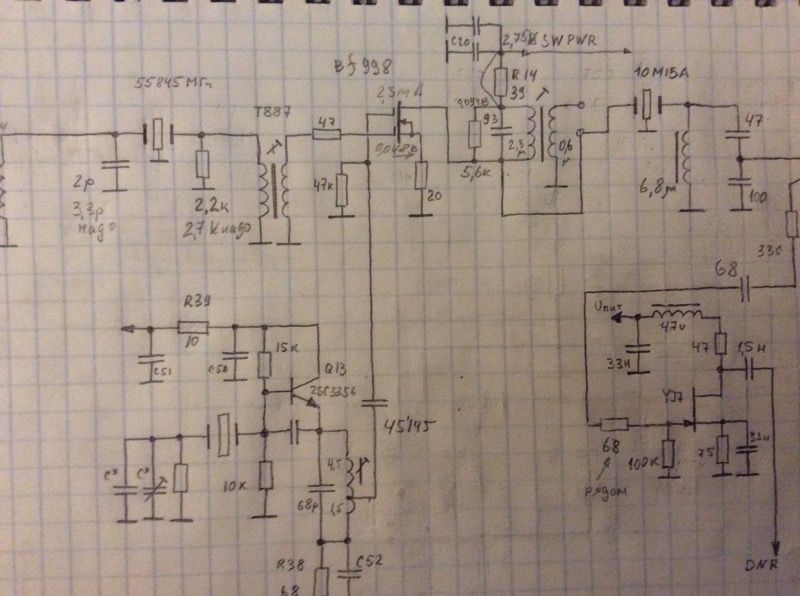 C20
2,75В SWPWR
R14
39
10M15A
Bf998
55845 МГц
T887
2,5mA
47
93
2,3
μ
0,6
μ
47
2p
3,3p
надо
2,2к
2,7Кнадо
47к
20
5,6к
6,8μ
100
330
68
R39
10
Uпит
47u
C51
C50
15к
Q13
2SC3356
33н
47
1,5н
45/45
C*
C*
10к
4,5
1,5
68p
68
рядом
100к
75
33н
R38
68
C52
DNR